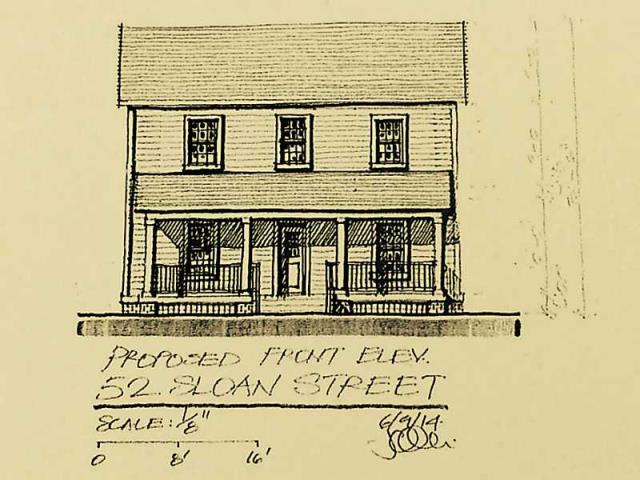 PROPOSED FRONT ELEV.
52 SLOAN STREET
SCALE: 1/8" 6/9/14
0 8' 16'